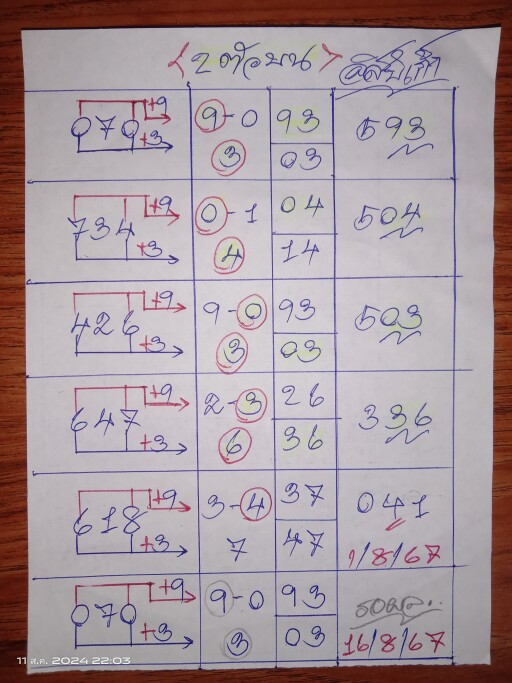 <2ตัวบน> สิบเก้า
070 +9 +3 9-0 3 93 03 593
734 +9 +3 0-1 4 04 14 504
426 +9 +3 9-0 3 93 03 503
647 +9 +3 2-3 6 26 36 336
618 +9 +3 3-4 7 37 47 041
1/8/67
070 +9 +3 9-0 3 93 03 รอผล..
16/8/67
11 ส.ค. 2024 22:03